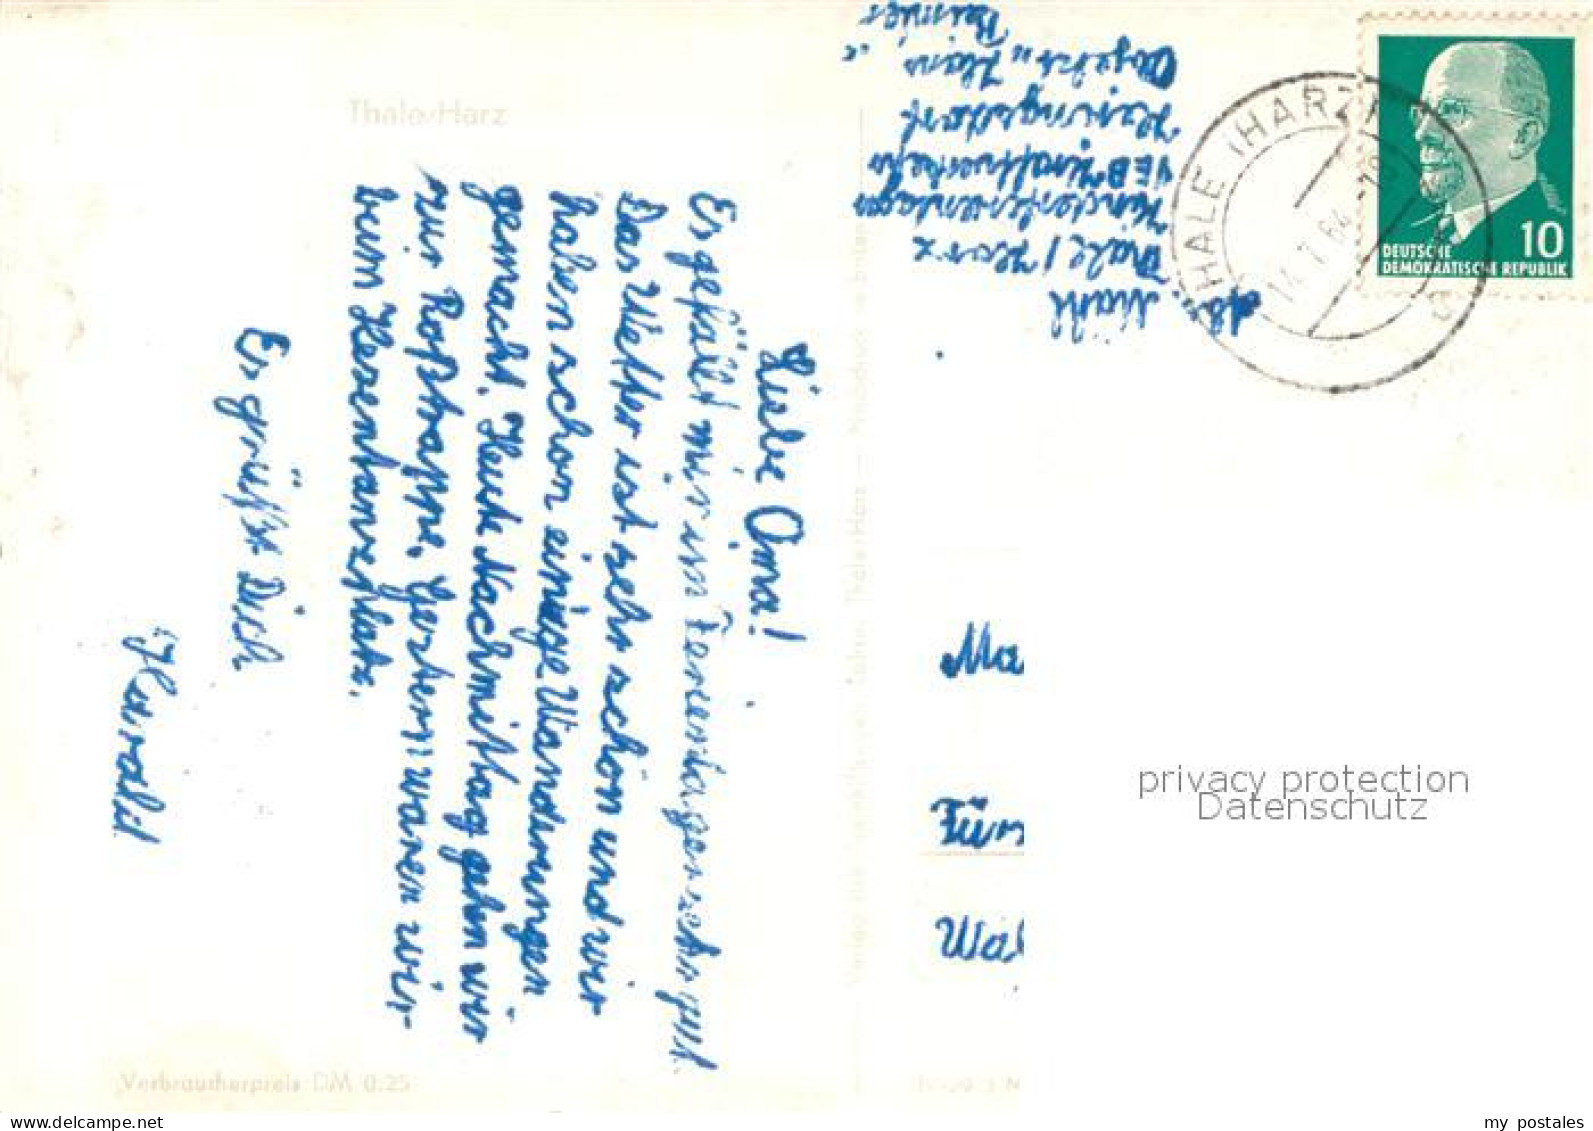 Thale/Harz
Liebe Oma!
Es gefällt mir im Ferienlager sehr gut.
Das Wetter ist sehr schön und wir
haben schon einige Wandrungen
gemacht. Heute Nachmittag gehen wir
zur Roßtrappe. Gestern waren wir
beim Hexentanzplatz.
Es grüßt Dich
Harald
Verbraucherpreis DM 0,25
Thale / Harz
Kinderferienlager
VEB Kraftverkehr
THALE (HARZ)
14.7.64
10
DEUTSCHE
DEMOKRATISCHE REPUBLIK
Ma
Für
Wa
privacy protection
Datenschutz
www.delcampe.net
my_postales